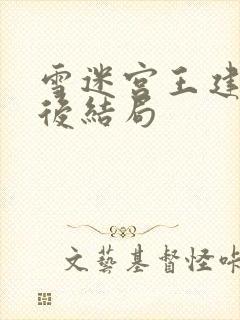 雪迷宮王建
後結局
文藝基督怪咔